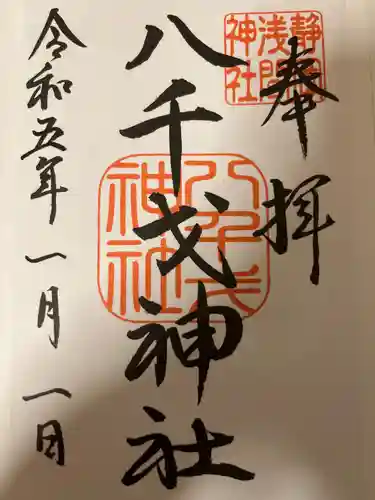 奉拝
静岡浅間神社
八千戈神社
八千戈神社
令和五年一月一日